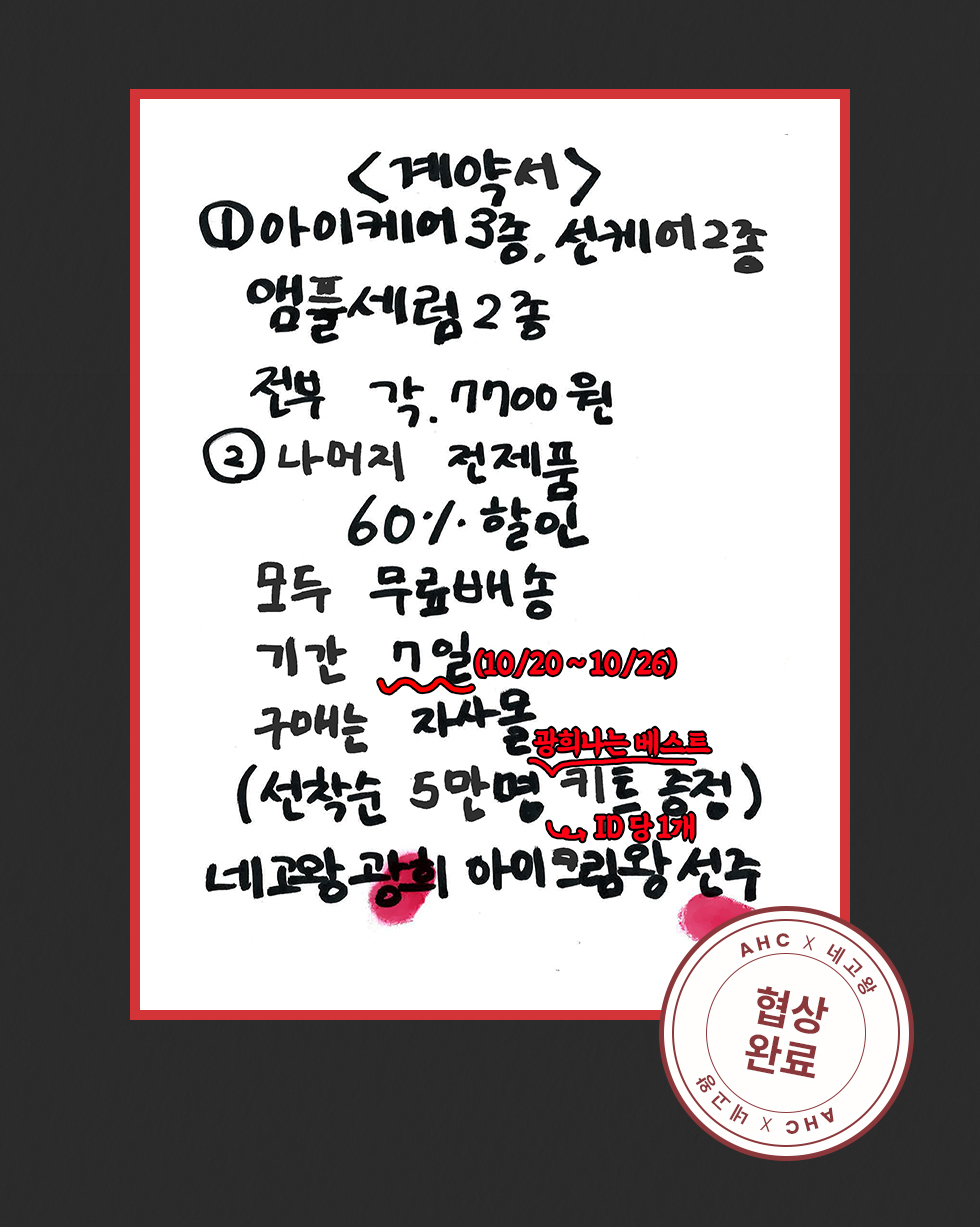 <계약서>
① 아이케어 3종, 선케어 2종
앰플세럼 2종
전부 각. 7700원
② 나머지 전제품
60% 할인
모두 무료배송
기간 7일 (10/20 ~ 10/26)
구매는 자사몰
광희나는 베스트
(선착순 5만명 키트 증정)
ID 당 1개
네고왕 광희 아이크림왕 선주
AHC X 네고왕
협상
완료
AHC X 네고왕